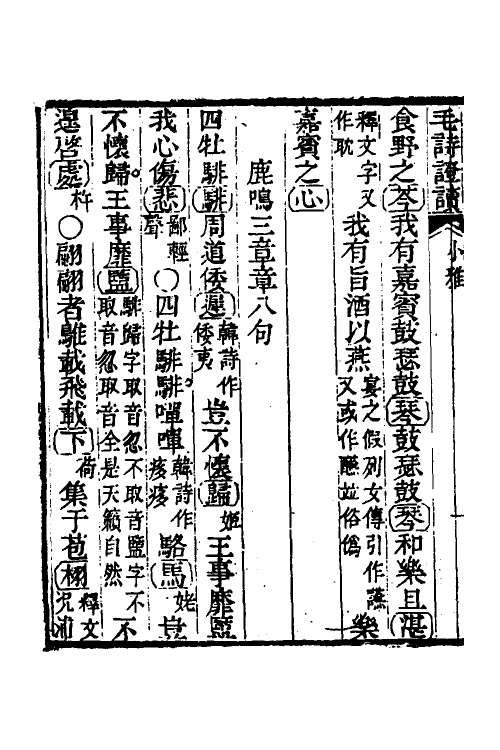 毛詩證讀 小雅
食野之芩我有嘉賓鼓瑟鼓琴鼓瑟鼓琴和樂且湛
釋文字又作耽我有旨酒以燕宴之假列女傳引作讌又或作醼竝俗僞樂
嘉賓之心
鹿鳴三章章八句
四牡騑騑周道倭遲韓詩作倭夷豈不懷歸姬王事靡盬
我心傷悲鄙輕聲○四牡騑騑嘽嘽韓詩作痑痑駱馬姥豈
不懷歸王事靡盬騑歸字取音忽不取音盬字不取音忽取音全是天籟自然不
遑啓處杵○翩翩者鵻載飛載下荷集于苞栩釋文況浦